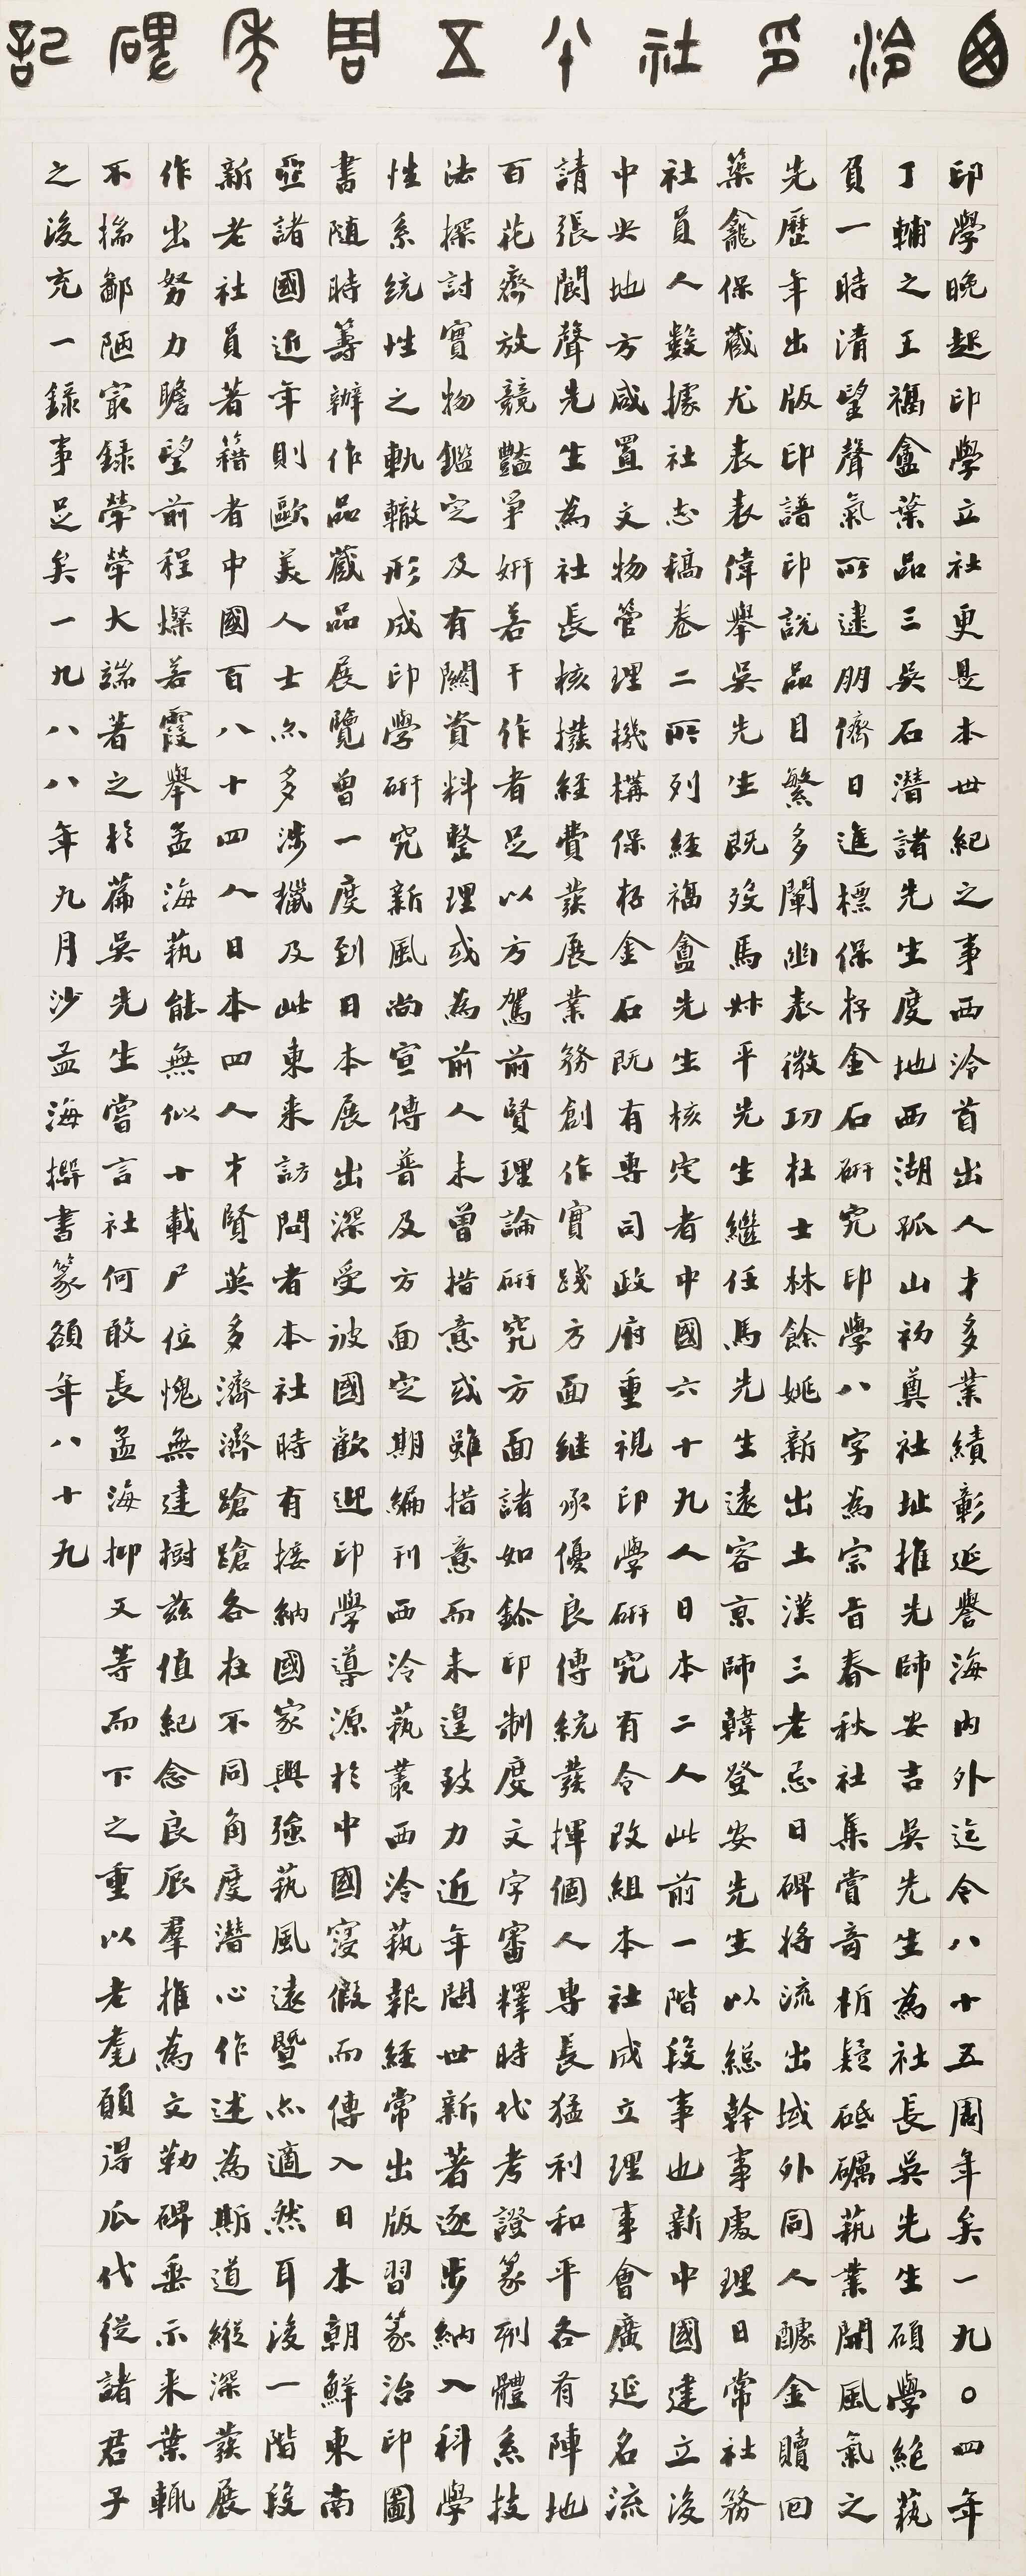 西泠印社八十五周年碑記
印學晚起印學立社更是本世紀之事西泠首出人才多業績彰延譽海內外迄今八十五周年矣一九〇四年
丁輔之王福盦葉品三吳石潛諸先生度地西湖孤山初奠社址推先師安吉吳先生為社長吳先生碩學絕藝
負一時清望聲氣所逮朋儕日進標保存金石研究印學八字為宗旨春秋社集賞奇析疑砥礪藝業開風氣之
先歷年出版印譜印說品目繁多闡幽表微功杜士林餘姚新出土漢三老忌日碑將流出域外同人醵金贖回
築龕保藏尤表表偉舉吳先生既歿馬叔平先生繼任馬先生遠客京師韓登安先生以總幹事處理日常社務
社員人數據社志稿卷二所列經福盦先生核定者中國六十九人日本二人此前一階段事也新中國建立後
中央地方咸置文物管理機構保存金石既有專司政府重視印學研究有令改組本社成立理事會廣延名流
請張閬聲先生為社長核撥經費發展業務創作實踐方面繼承優良傳統發揮個人專長猛利和平各有陣地
百花齊放競豔爭妍若干作者足以方駕前賢理論研究方面諸如鉨印制度文字審釋時代考證篆刻體系技
法探討實物鑑定及有關資料整理或為前人未曾措意或雖措意而未遑致力近年問世新著逐步納入科學
性系統性之軌轍形成印學研究新風尚宣傳普及方面定期編刊西泠藝叢西泠藝報經常出版習篆治印圖
書隨時籌辦作品藏品展覽曾一度到日本展出深受彼國歡迎印學導源於中國寖假而傳入日本朝鮮東南
亞諸國近年則歐美人士亦多涉獵及此東來訪問者本社時有接納國家興強藝風遠暨亦適然耳後一階段
新老社員著籍者中國百八十四人日本四人才賢英多濟濟蹌蹌各在不同角度潛心作述為斯道縱深發展
作出努力瞻望前程燦若霞舉孟海藝能無似十載尸位愧無建樹茲值紀念良辰羣推為文勒碑垂示來葉輒
不揣鄙陋寀錄犖犖大端著之於篇吳先生嘗言社何敢長孟海抑又等而下之重以老耄願得瓜代從諸君子
之後充一錄事足矣一九八八年九月沙孟海撰書篆額年八十九